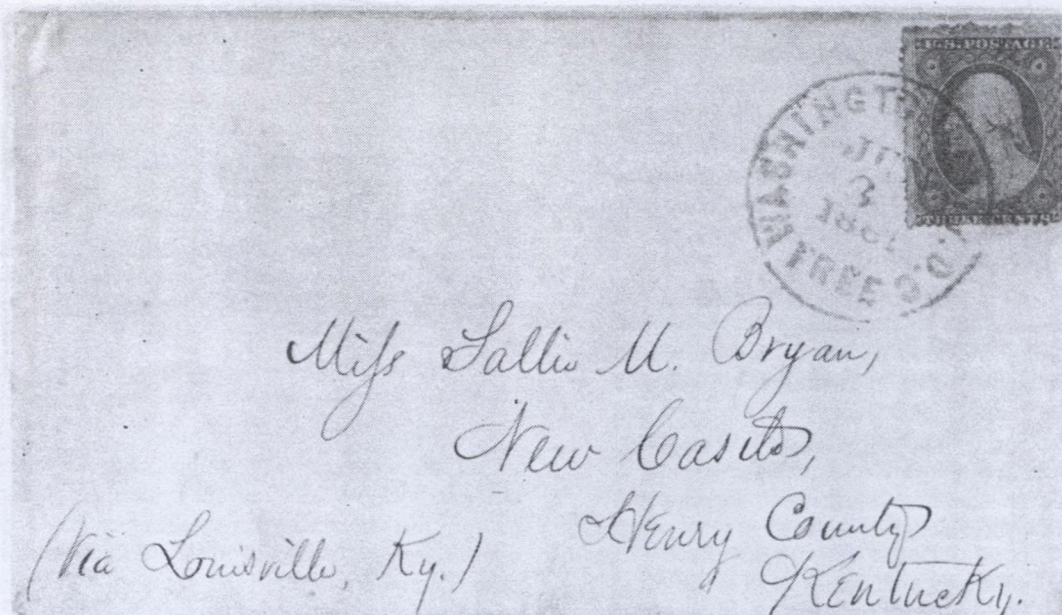 U.S. POSTAGE
THREE CENTS
WASHINGTON D.C.
3
FREE
Miss Sallie M. Bryan,
New Castle,
Henry County
Kentucky.
(Via Louisville, Ky.)